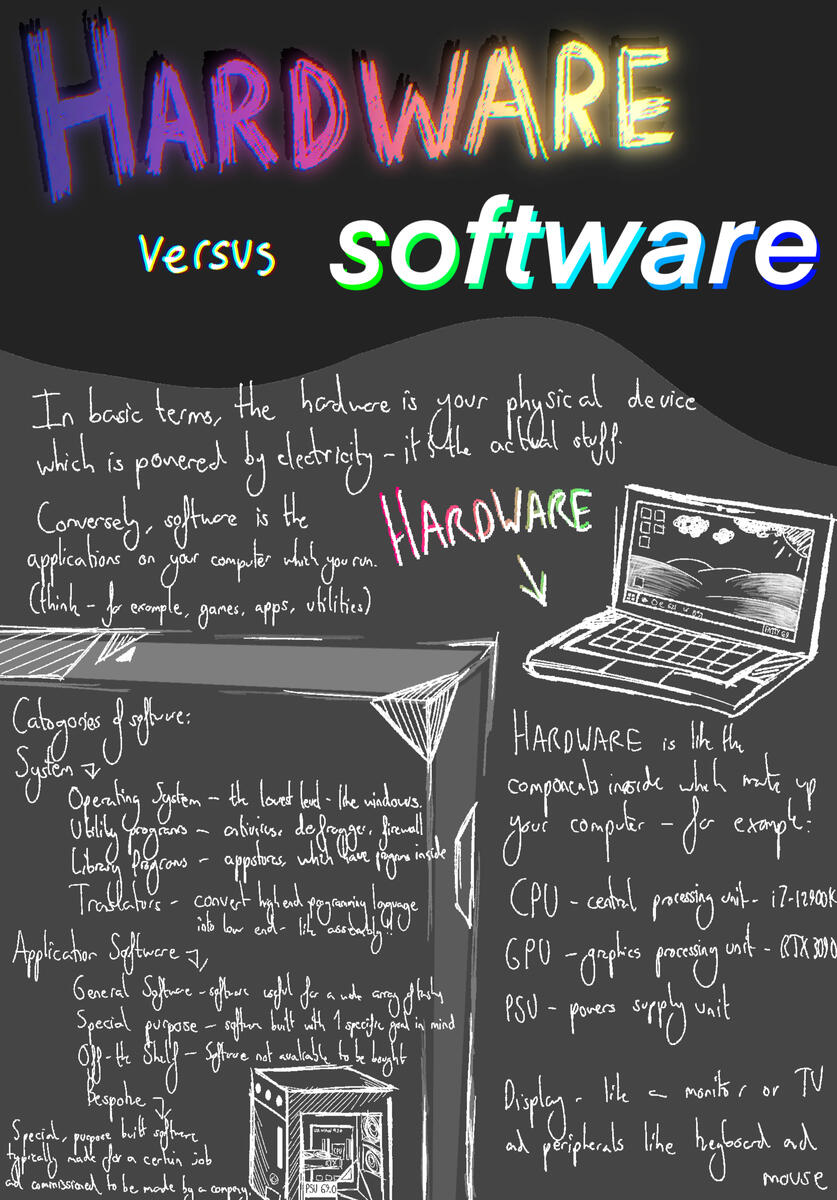 HARDWARE
versus
software
In basic terms, the hardware is your physical device
which is powered by electricity - it's the actual stuff.
Conversely, software is the
applications on your computer which you run.
(think - for example, games, apps, utilities)
HARDWARE
Catogories of software:
System
Operating System - the lowest level - like windows.
Utility programs - antivirus, defragger, firewall
Library Programs - appstores, which have programs inside
Translators - convert high end programming language
into low end - like assembly!
Application Software
General Software - software useful for a wide array of tasks
Special purpose - software built with 1 specific goal in mind
Off-the Shelf - Software not avaliable to be bought
Bespoke
Special, purpose built software
typically made for a certain job
and commissioned to be made by a company.
PSU 69.0
HARDWARE is like the
components inside which make up
your computer - for example:
CPU - central processing unit - i7-12900K
GPU - graphics processing unit - RTX 3090
PSU - powers supply unit
Display - like a monitor or TV
and peripherals like keyboard and
mouse